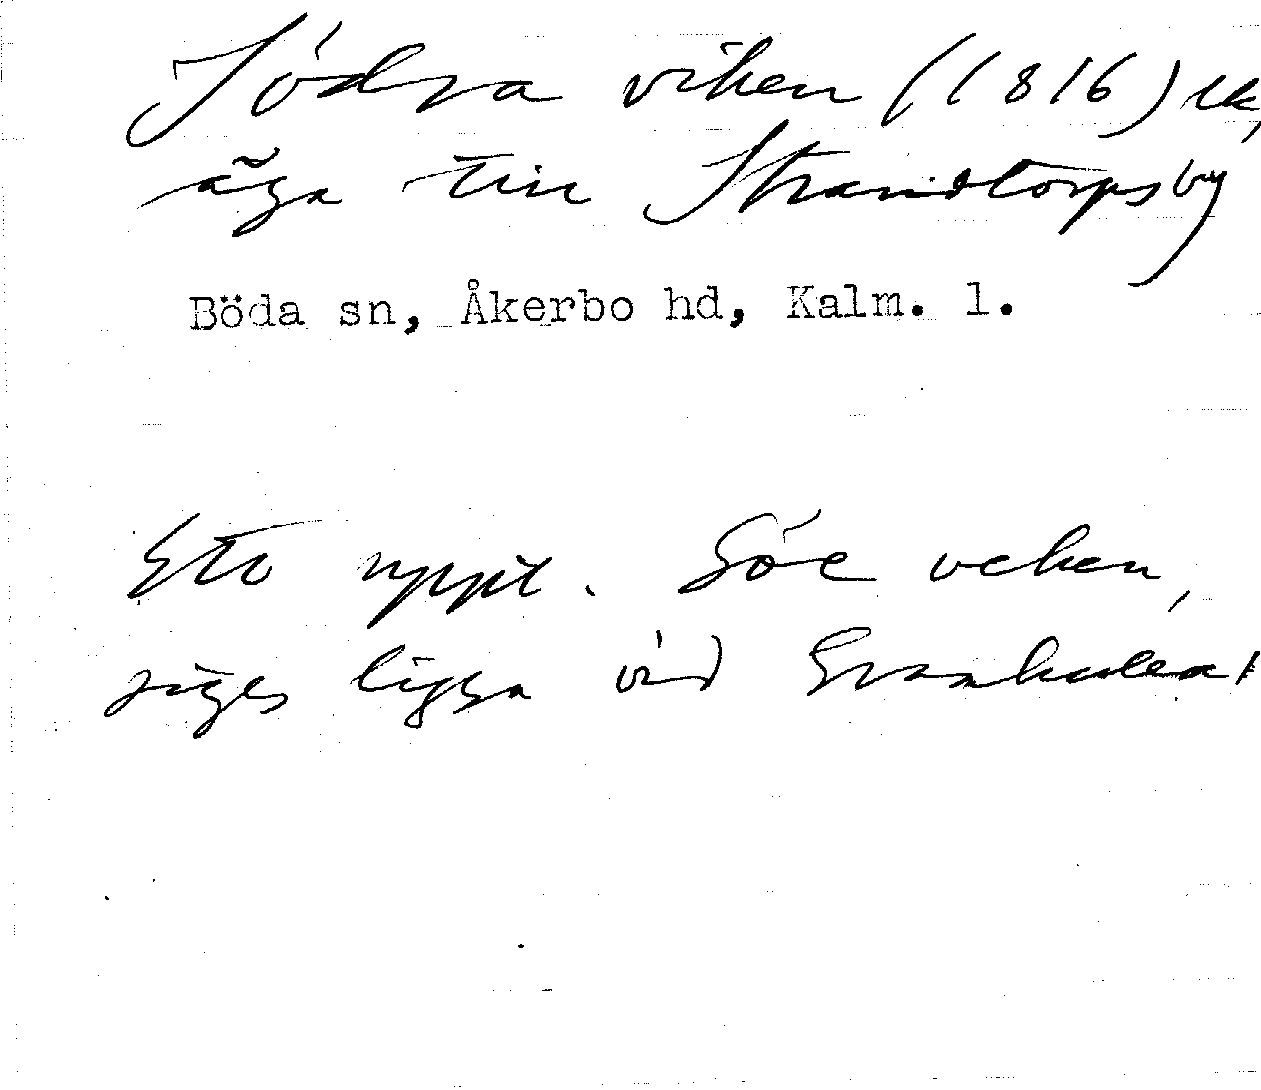 Södra viken (1816) lk,
äga till Strandtorps by
Böda sn, Åkerbo hd, Kalm. l.
Ett uppt. Söe veken,
säges ligga vid